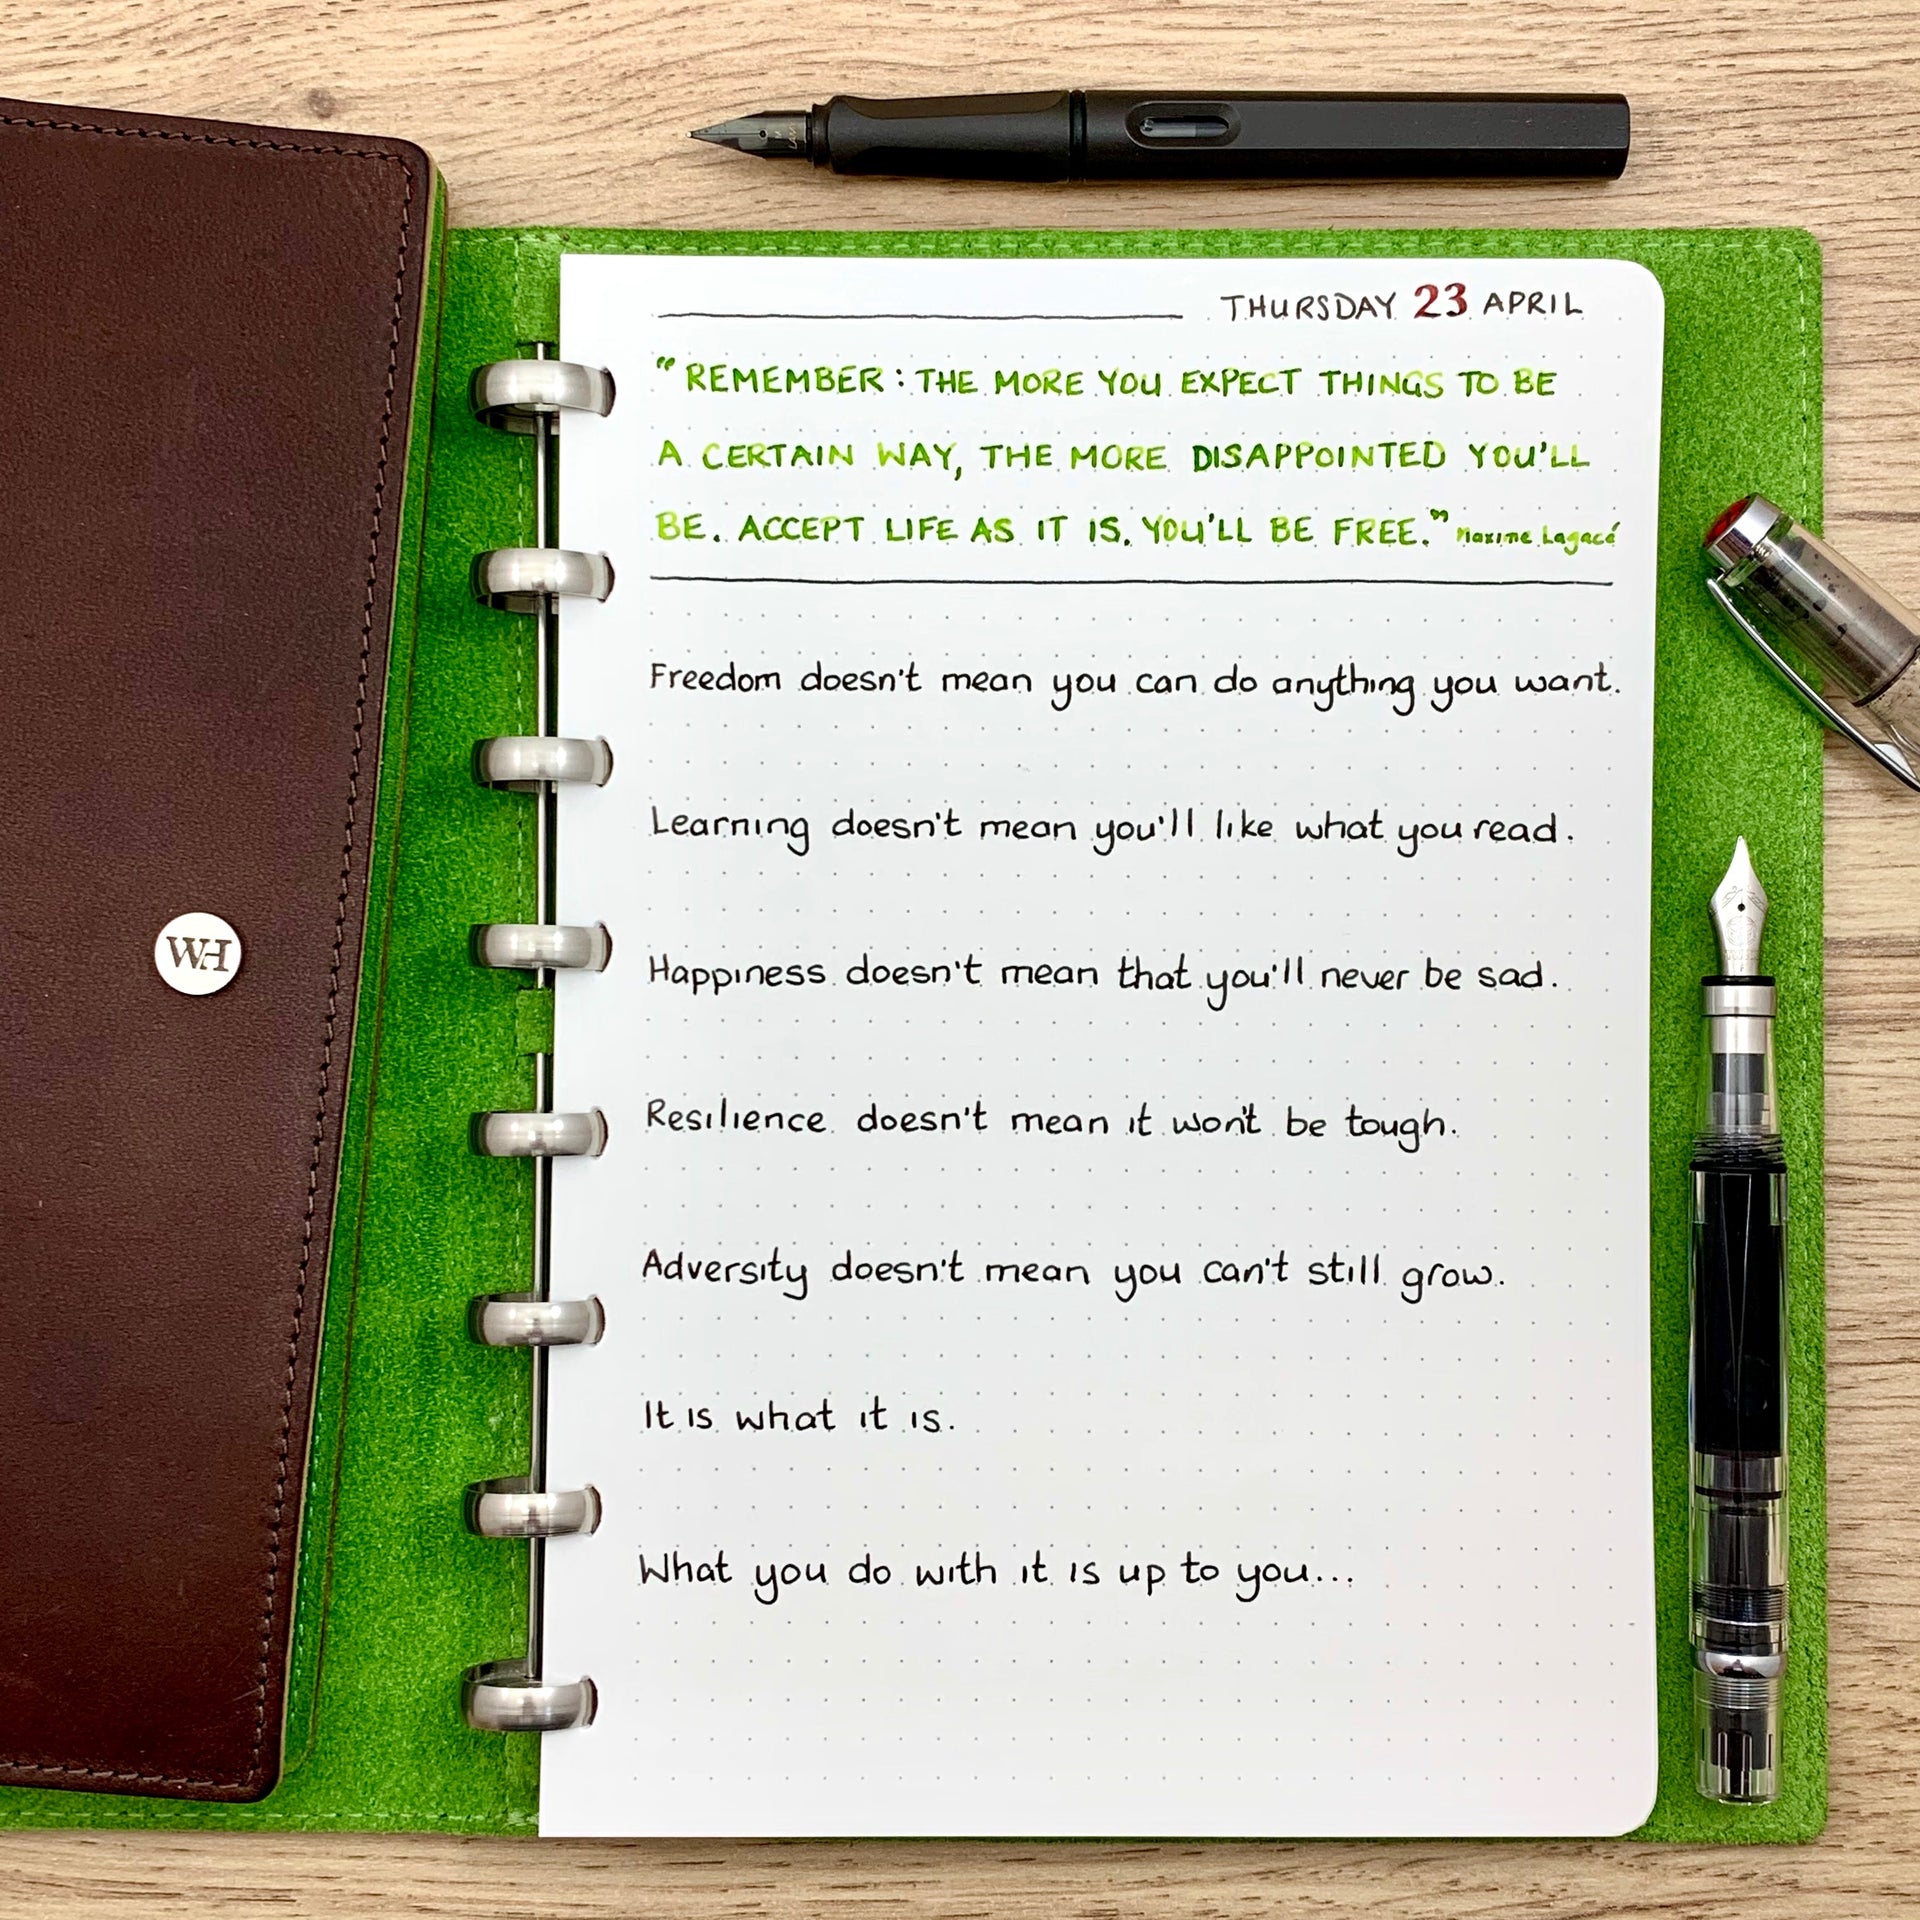 THURSDAY 23 APRIL
"REMEMBER: THE MORE YOU EXPECT THINGS TO BE
A CERTAIN WAY, THE MORE DISAPPOINTED YOU'LL
BE. ACCEPT LIFE AS IT IS. YOU'LL BE FREE." Maxime Lagacé
Freedom doesn't mean you can do anything you want.
Learning doesn't mean you'll like what you read.
Happiness doesn't mean that you'll never be sad.
Resilience doesn't mean it won't be tough.
Adversity doesn't mean you can't still grow.
It is what it is.
What you do with it is up to you...
WH
LAMY